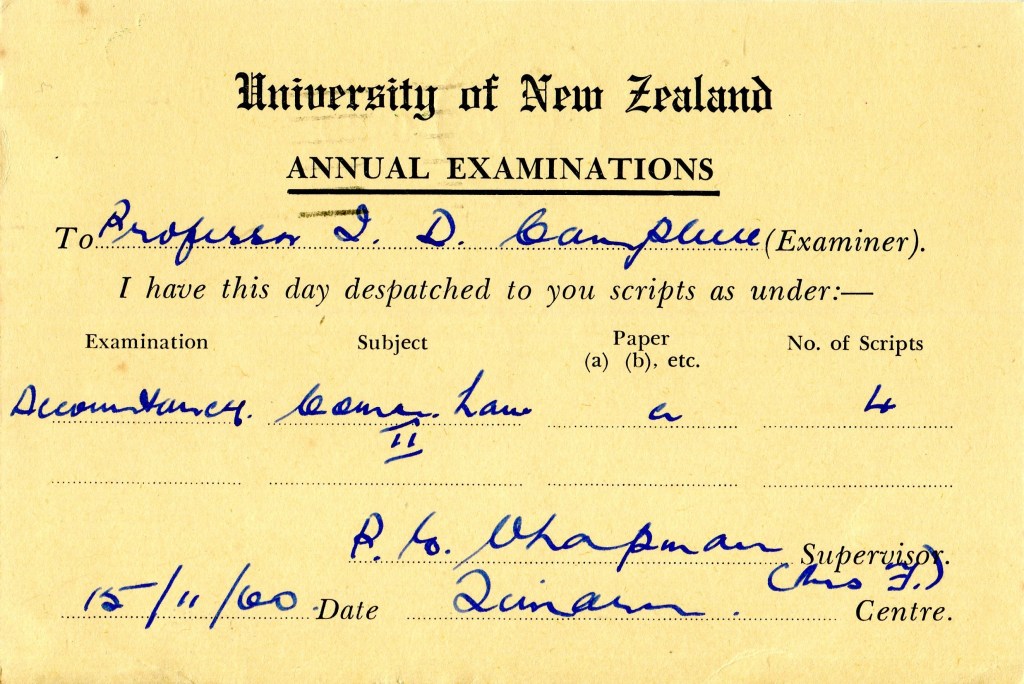 University of New Zealand
ANNUAL EXAMINATIONS
To Professor I. D. Campbell (Examiner).
I have this day despatched to you scripts as under:—
Examination Subject Paper (a) (b), etc. No. of Scripts
Accountancy. Comm. Law II a 4
Chapman Supervisor.
(Mrs F.)
15/11/60 Date Timaru. Centre.